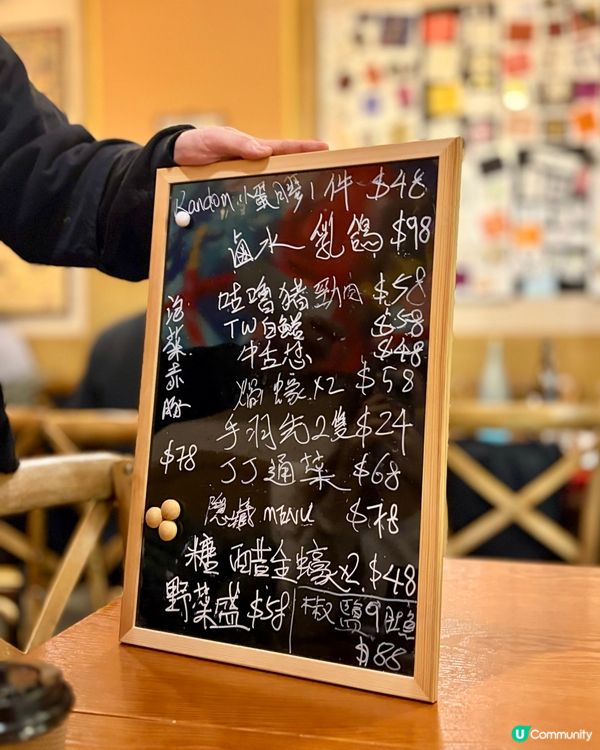 Random 小蛋月嫛 1件 $48
鹵水 乳鴿 $98
咕嚕豬頸肉 $58
TW白鱔 $58
牛舌芯 $48
焗蠔 x2 $58
手羽先2隻 $24
JJ通菜 $68
隱藏 MENU $78
糖醋金蠔x2 $48
野菜盛 $58
椒鹽9肚魚
$88
泡菜赤豚
$78
U Community